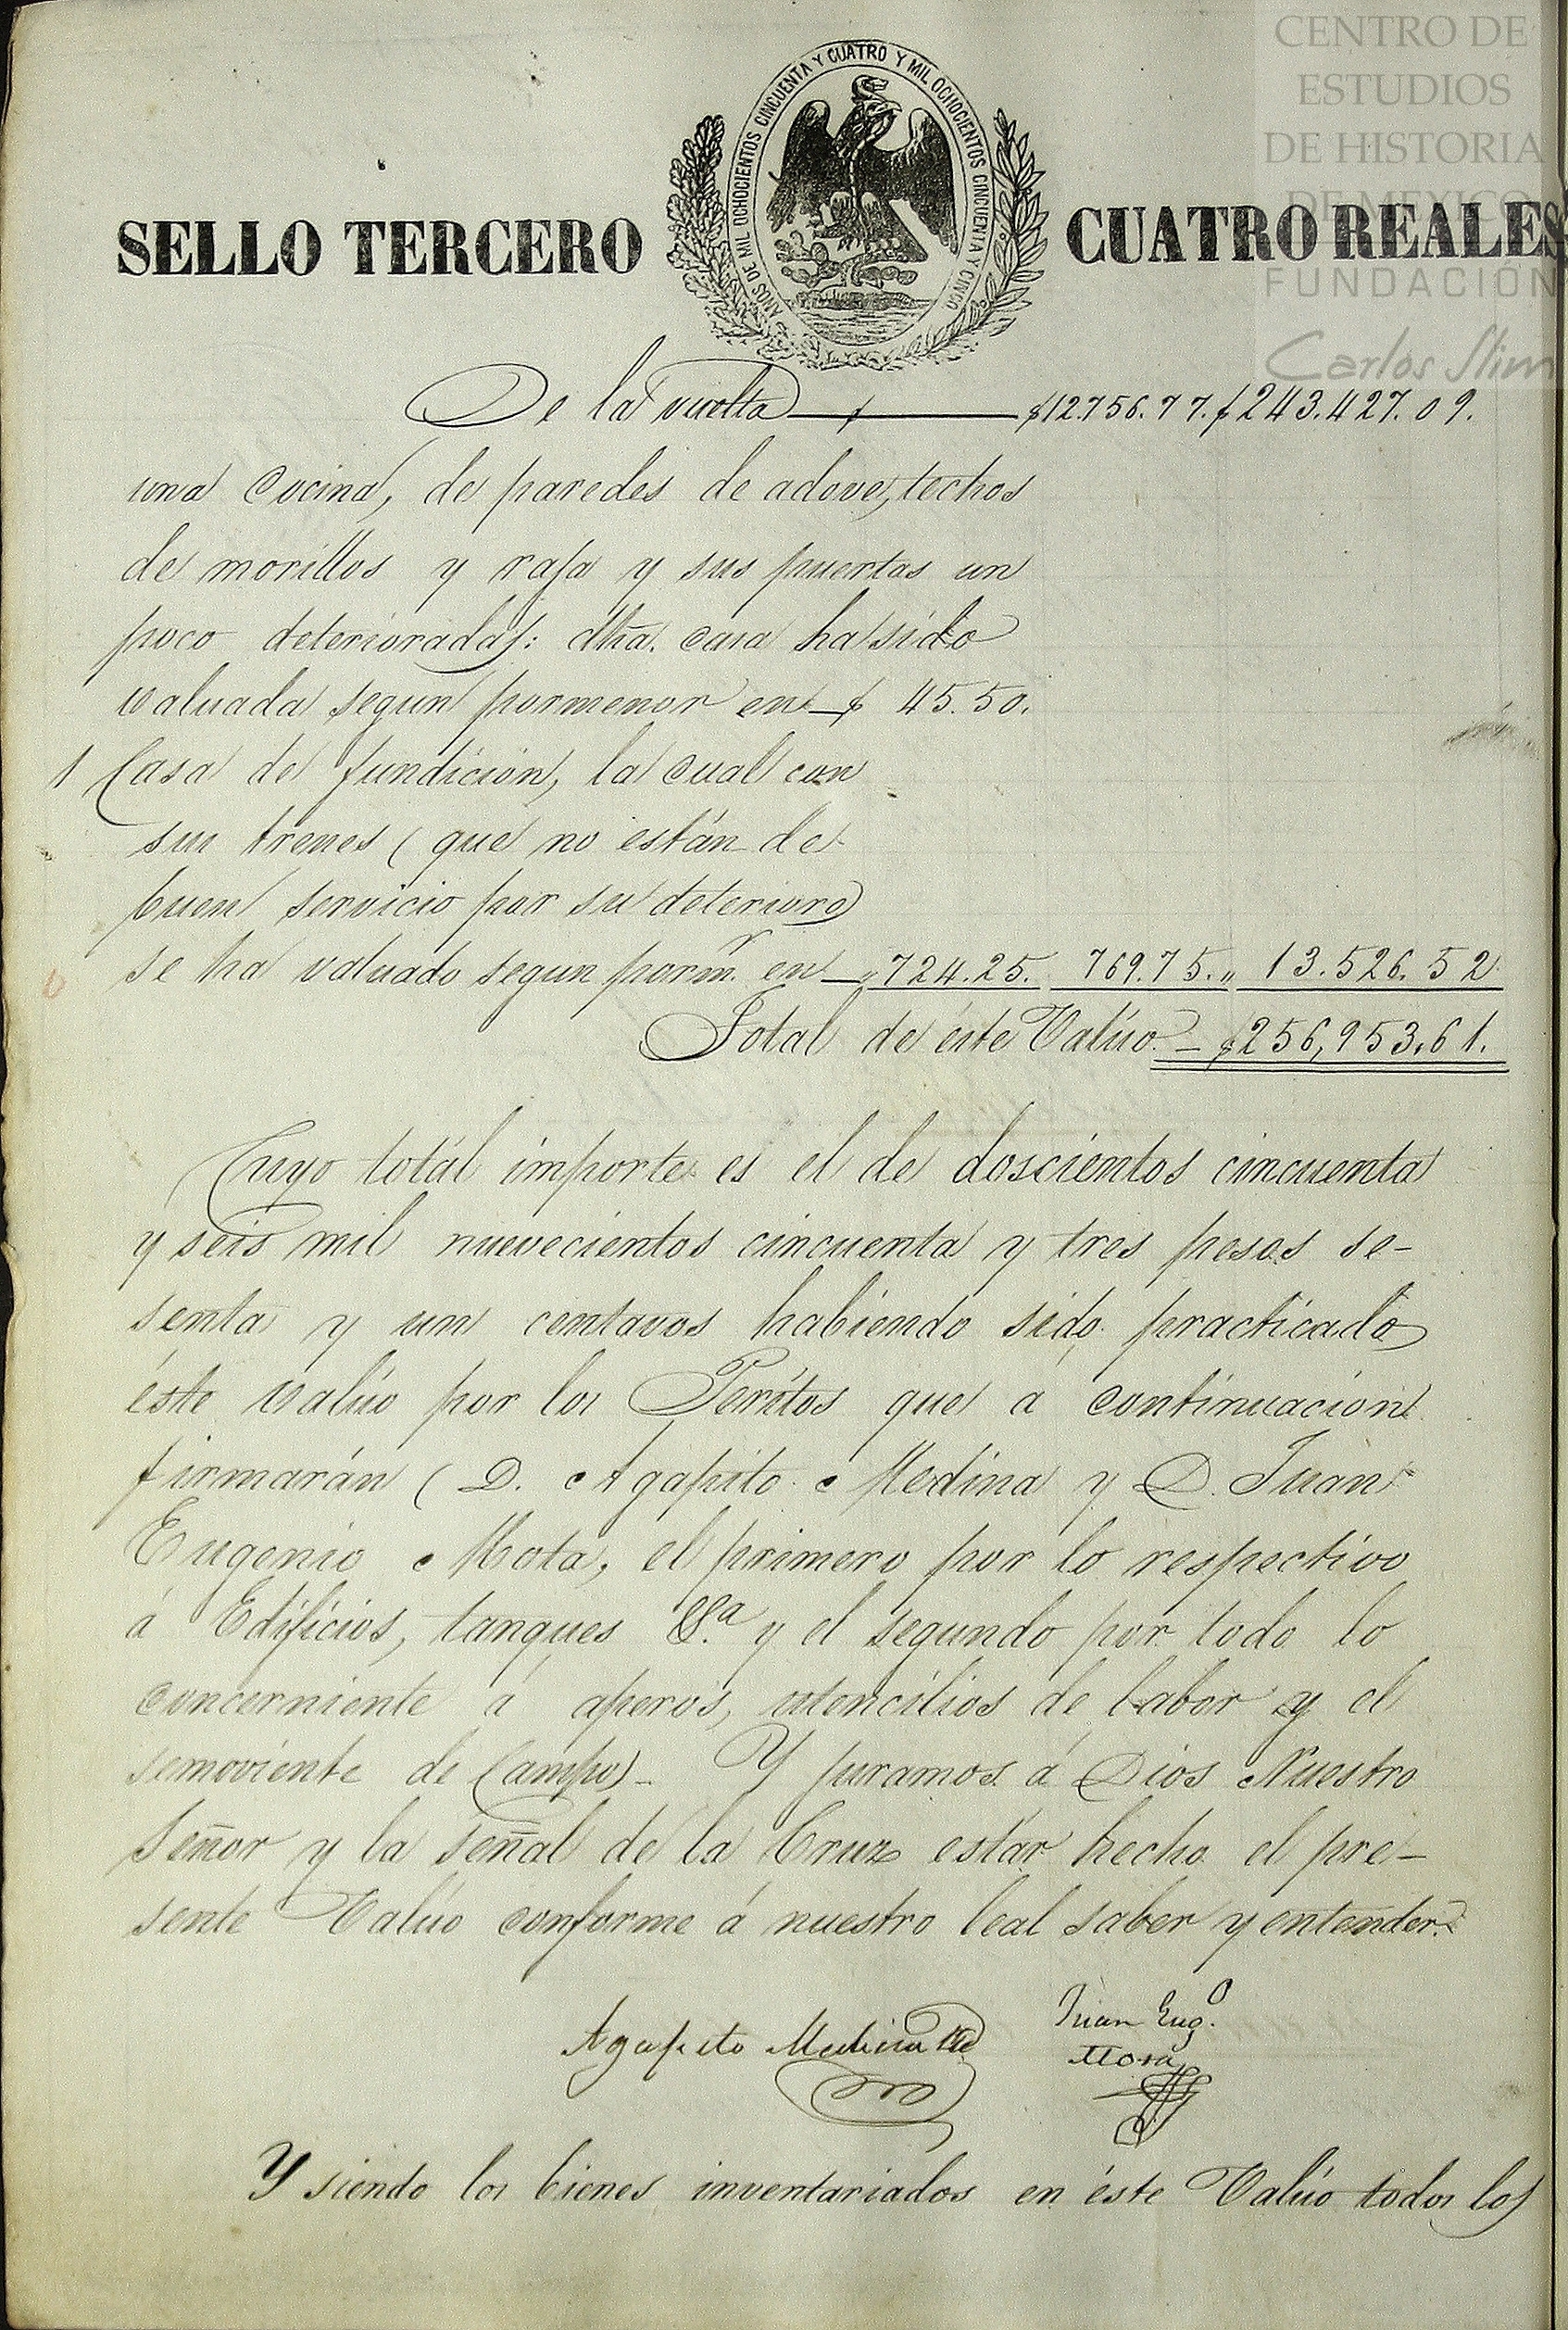 CENTRO DE
ESTUDIOS
DE HISTORIA
DE MEXICO
FUNDACIÓN
Carlos Slim
AÑOS DE MIL OCHOCIENTOS CINCUENTA Y CUATRO Y MIL OCHOCIENTOS CINCUENTA Y CINCO
SELLO TERCERO CUATRO REALES
De la vuelta $12.756.77. $243.427.09.
una Cocina, de paredes de adove, techos
de morillos y raja y sus puertas un
poco deterioradas: dha. casa ha sido
valuada segun pormenor en $ 45.50.
1 Casa de fundicion, la cual con
sus trenes (que no están de
buen servicio por su deterioro)
se ha valuado segun porm.r en " 724.25. 769.75. " 13.526.52
Total de éste Valúo $256,953.61.
Cuyo totál importe es el de doscientos cincuenta
y seis mil nuevecientos cincuenta y tres pesos se-
senta y un centavos habiendo sido practicado
éste valúo por los Peritos que á continuacion
firmarán (D. Agapito Medina y D. Juan
Eugenio Mota, el primero por lo respectivo
á Edificios, tanques &.a y el segundo por todo lo
concerniente á aperos, utencilios de labor y el
semoviente de Campo) - Y juramos á Dios Nuestro
Señor y la señal de la Cruz estár hecho el pre-
sente Valúo conforme á nuestro leal saber y entender.
Agapito Medina
Juan Eug.o
Mora
Y siendo los bienes inventariados en éste Valúo todos los